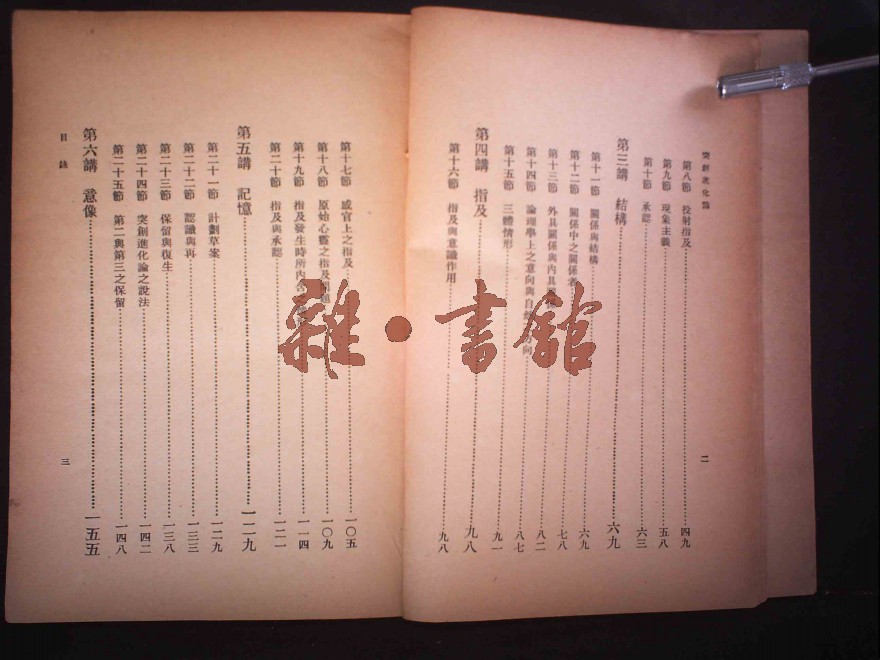 突創進化論
第八節 投射指及 四九
第九節 現象主義 五八
第十節 承認 六三
第三講 結構 六九
第十一節 關係與結構 六九
第十二節 關係中之關係者 七八
第十三節 外具關係與內具 八二
第十四節 論理學上之意向與自然 方向 八七
第十五節 三體情形 九一
第四講 指及 九八
第十六節 指及與意識作用 九八
二
第十七節 感官上之指及 一〇五
第十八節 原始心靈之指及 一〇九
第十九節 指及發生時所內含 一一四
第二十節 指及與承認 一二一
第五講 記憶 一二九
第二十一節 計劃草案 一二九
第二十二節 認識與再 一三三
第二十三節 保留與復生 一三八
第二十四節 突創進化論之說法 一四二
第二十五節 第二與第三之保留 一四八
第六講 意像 一五五
目錄
三
雜·書館